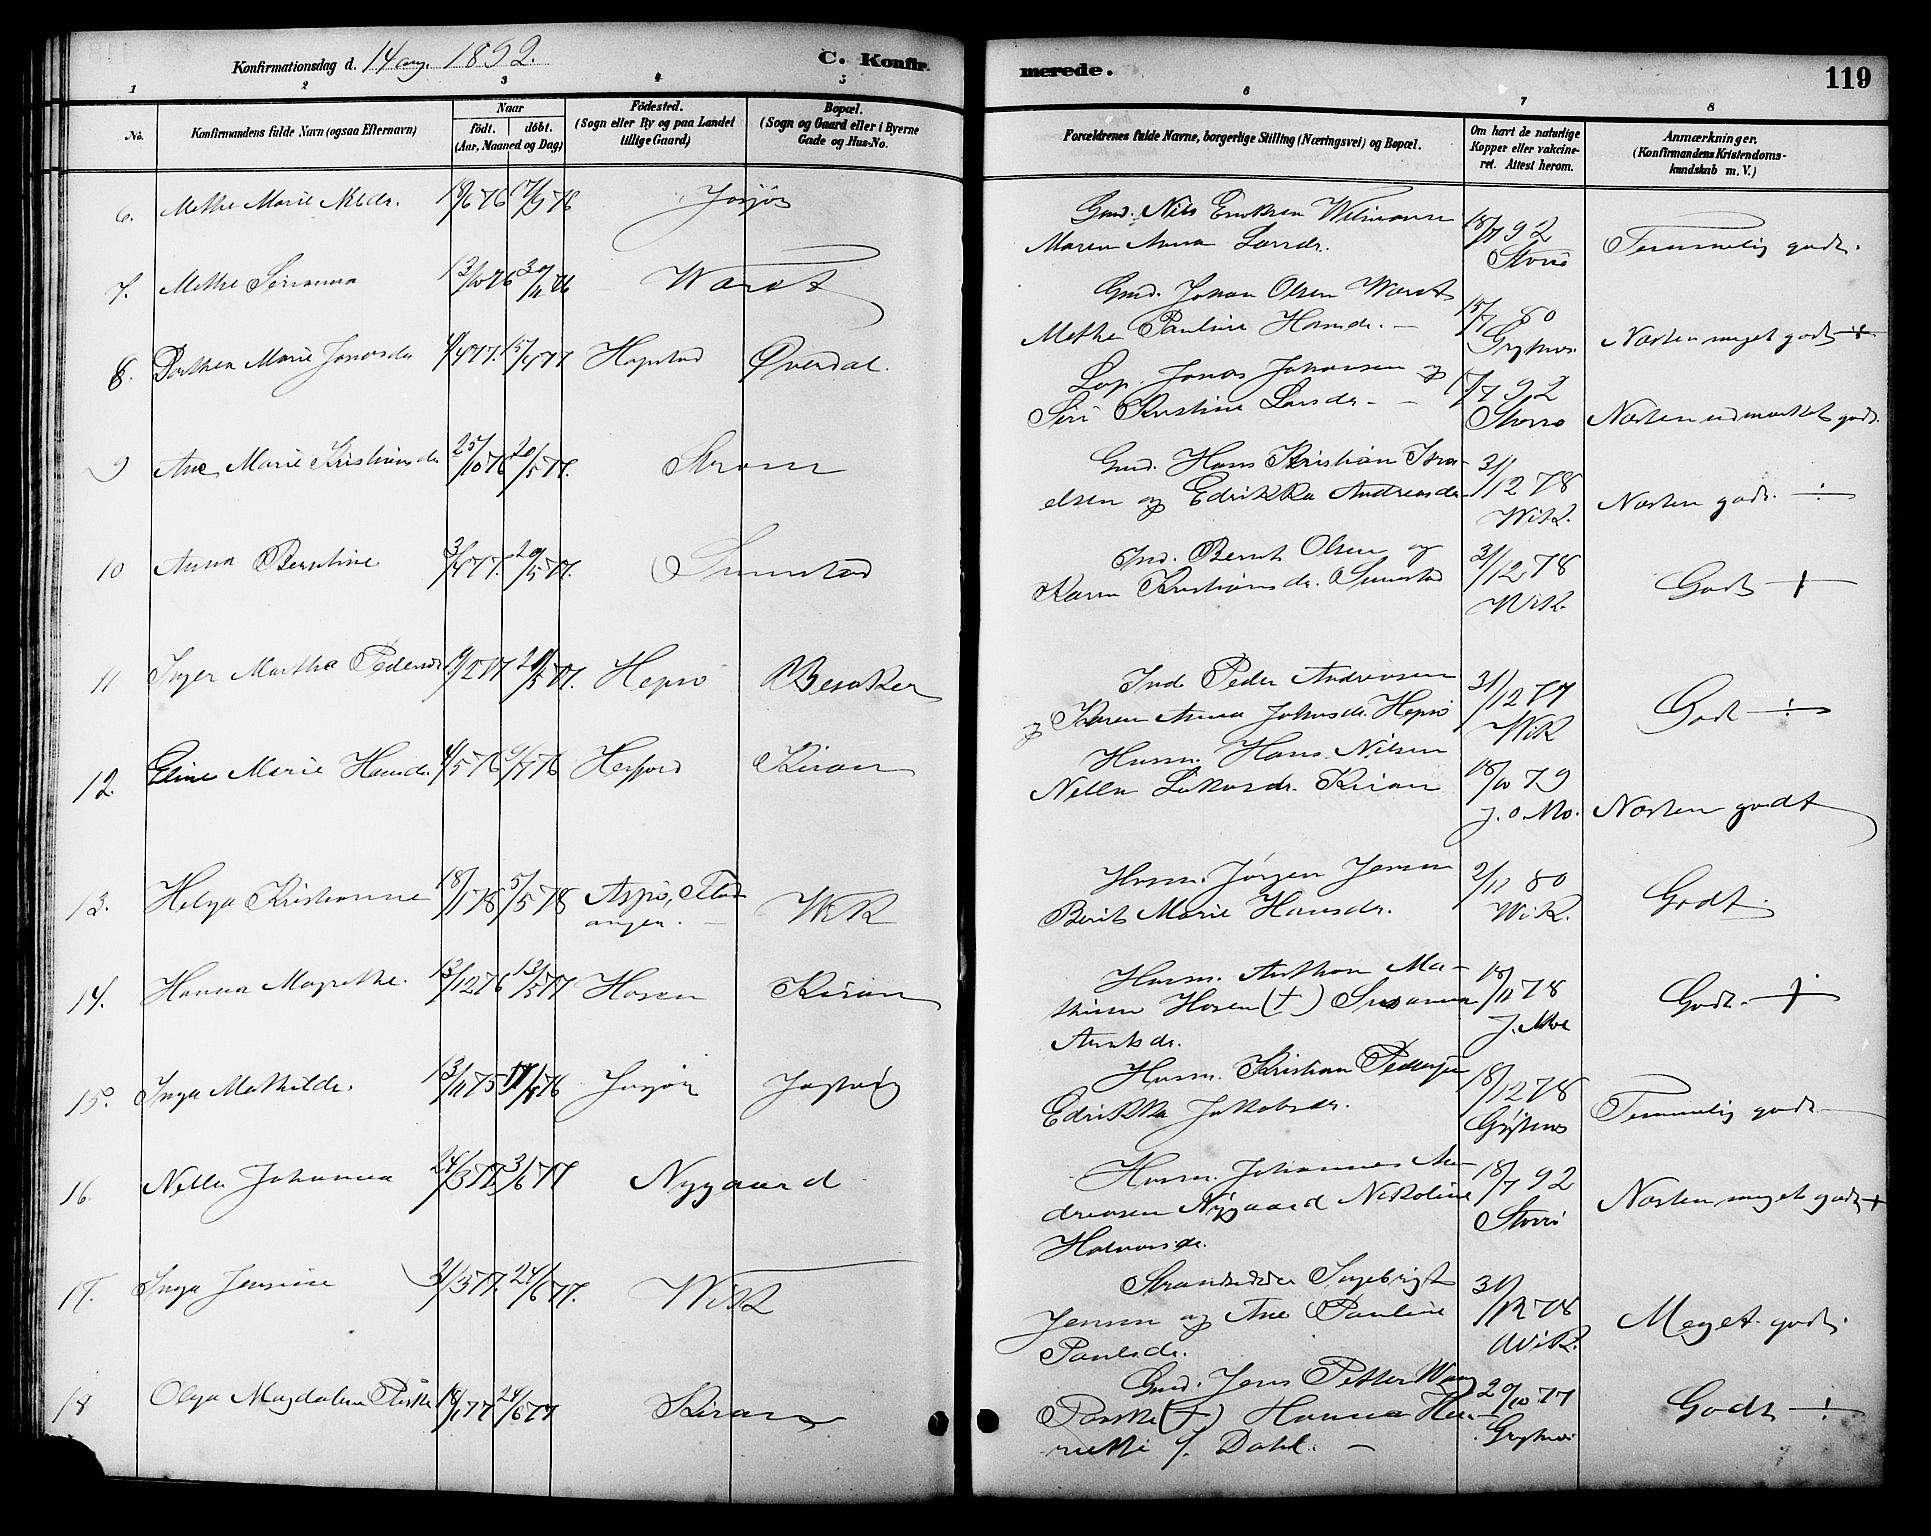 Konfirmationsdag d. 14 aug. 1892.
C. Konfir-
merede.
119
1 2 3 4 5 6 7 8
No.
Konfirmandens fulde Navn (ogsaa Efternavn)
Naar
født. døbt.
(Aar, Maaned og Dag)
Födested.
(Sogn eller By og paa Landet
tillige Gaard)
Bopæl.
(Sogn og Gaard eller i Byerne
Gade og Hus-No.
Forældrenes fulde Navne, borgerlige Stilling (Næringsvei) og Bopæl.
Om havt de naturlige
Kopper eller vakcine-
ret. Attest herom.
Anmærkninger.
(Konfirmandens Kristendoms-
kundskab m. V.)
6. Methe Marie Nilsdr. 18/6 76 17/9 76 Jøssjøen
Gmd. Nils Eriksen
Maren Anna Larsdr.
18/7 92
Storø
Temmelig godt.
7. Methe Serianna 13/10 76 30/11 76 Waröt
Gmd. Johan Olsen Waröt
Methe Pauline Hansdr. —
15/7 80
Grytnes
Næsten meget godt +
8. Dorthea Marie Jonasdr 4/4 77. 15/4 77 Hopstad Øverdal.
Lap. Jonas Johansen og
Siri Kristine Larsdr. —
17/7 92
Storrø
Næsten udmærket godt.
9 Ane Marie Kristiansdr 25/10 76 20/5 77. Strøm
Gmd. Hans Kristian Isra-
elsen og Edrikka Andreasdr
31/12 78
Wik.
Næsten godt. ÷
10 Anna Berntine 3/4 77. 20/5 77. Sumstad
Ind. Bernt Olsen og
Karen Kristiansdr. Sumstad
31/12 78
Wik.
Godt +
11 Inger Martha Pedersdr 9/2 77 20/5 77. Hepsø Besaker
Ind. Peder Andreasen
og Karen Anna Johnsdr. Hepsø
31/12 77
Wik
Godt ÷
12. Eline Marie Hansdr. 4/5 76 9/7 76 Herfjord Kiran
Husm. Hans Nilsen
Nella Lukasdr. Kiran
18/10 79
J. O. Mo.
Næsten godt
13. Helga Kristianne 18/1 78 5/5 78 Aspø, Flat-
anger. — Wik
Husm. Jørgen Jensen
Berit Marie Hansdr.
2/11 80
Wik.
Godt.
14. Hanna Magrethe. 13/12 76 13/5 77 Hosen Kiran
Husm. Anthon Ma-
thisen Hosen (†) Susanna
Arntsdr.
18/11 78
J. Moe
Godt. +
15. Inga Mathilde. 13/11 75 Jøssjøen
Husm. Kristian Pedersen
Edrikka Jakobsdr.
18/12 78
Grytnes
Temmelig godt
16. Nella Johanna 24/3 77. 3/6 77 Nygaard
Husm. Johannes An-
dreasen Nygaard Nikoline
Halvorsdr.
18/7 92
Storrø
Næsten meget godt +
17. Inga Jensine 31/3 77. 24/6 77. Wik
Strandsidder Ingebrigt
Jensen og Ane Pauline
Paulsdr.
31/12 78
Wik.
Meget godt.
18 Olga Magdalene Paske 18/1 77 24/6 77 Kiran
Gmd. Jens Petter Wang
Paske (†) Hanna Hen-
riette f. Dahl. —
20/10 77
Grytnes
Godt ÷